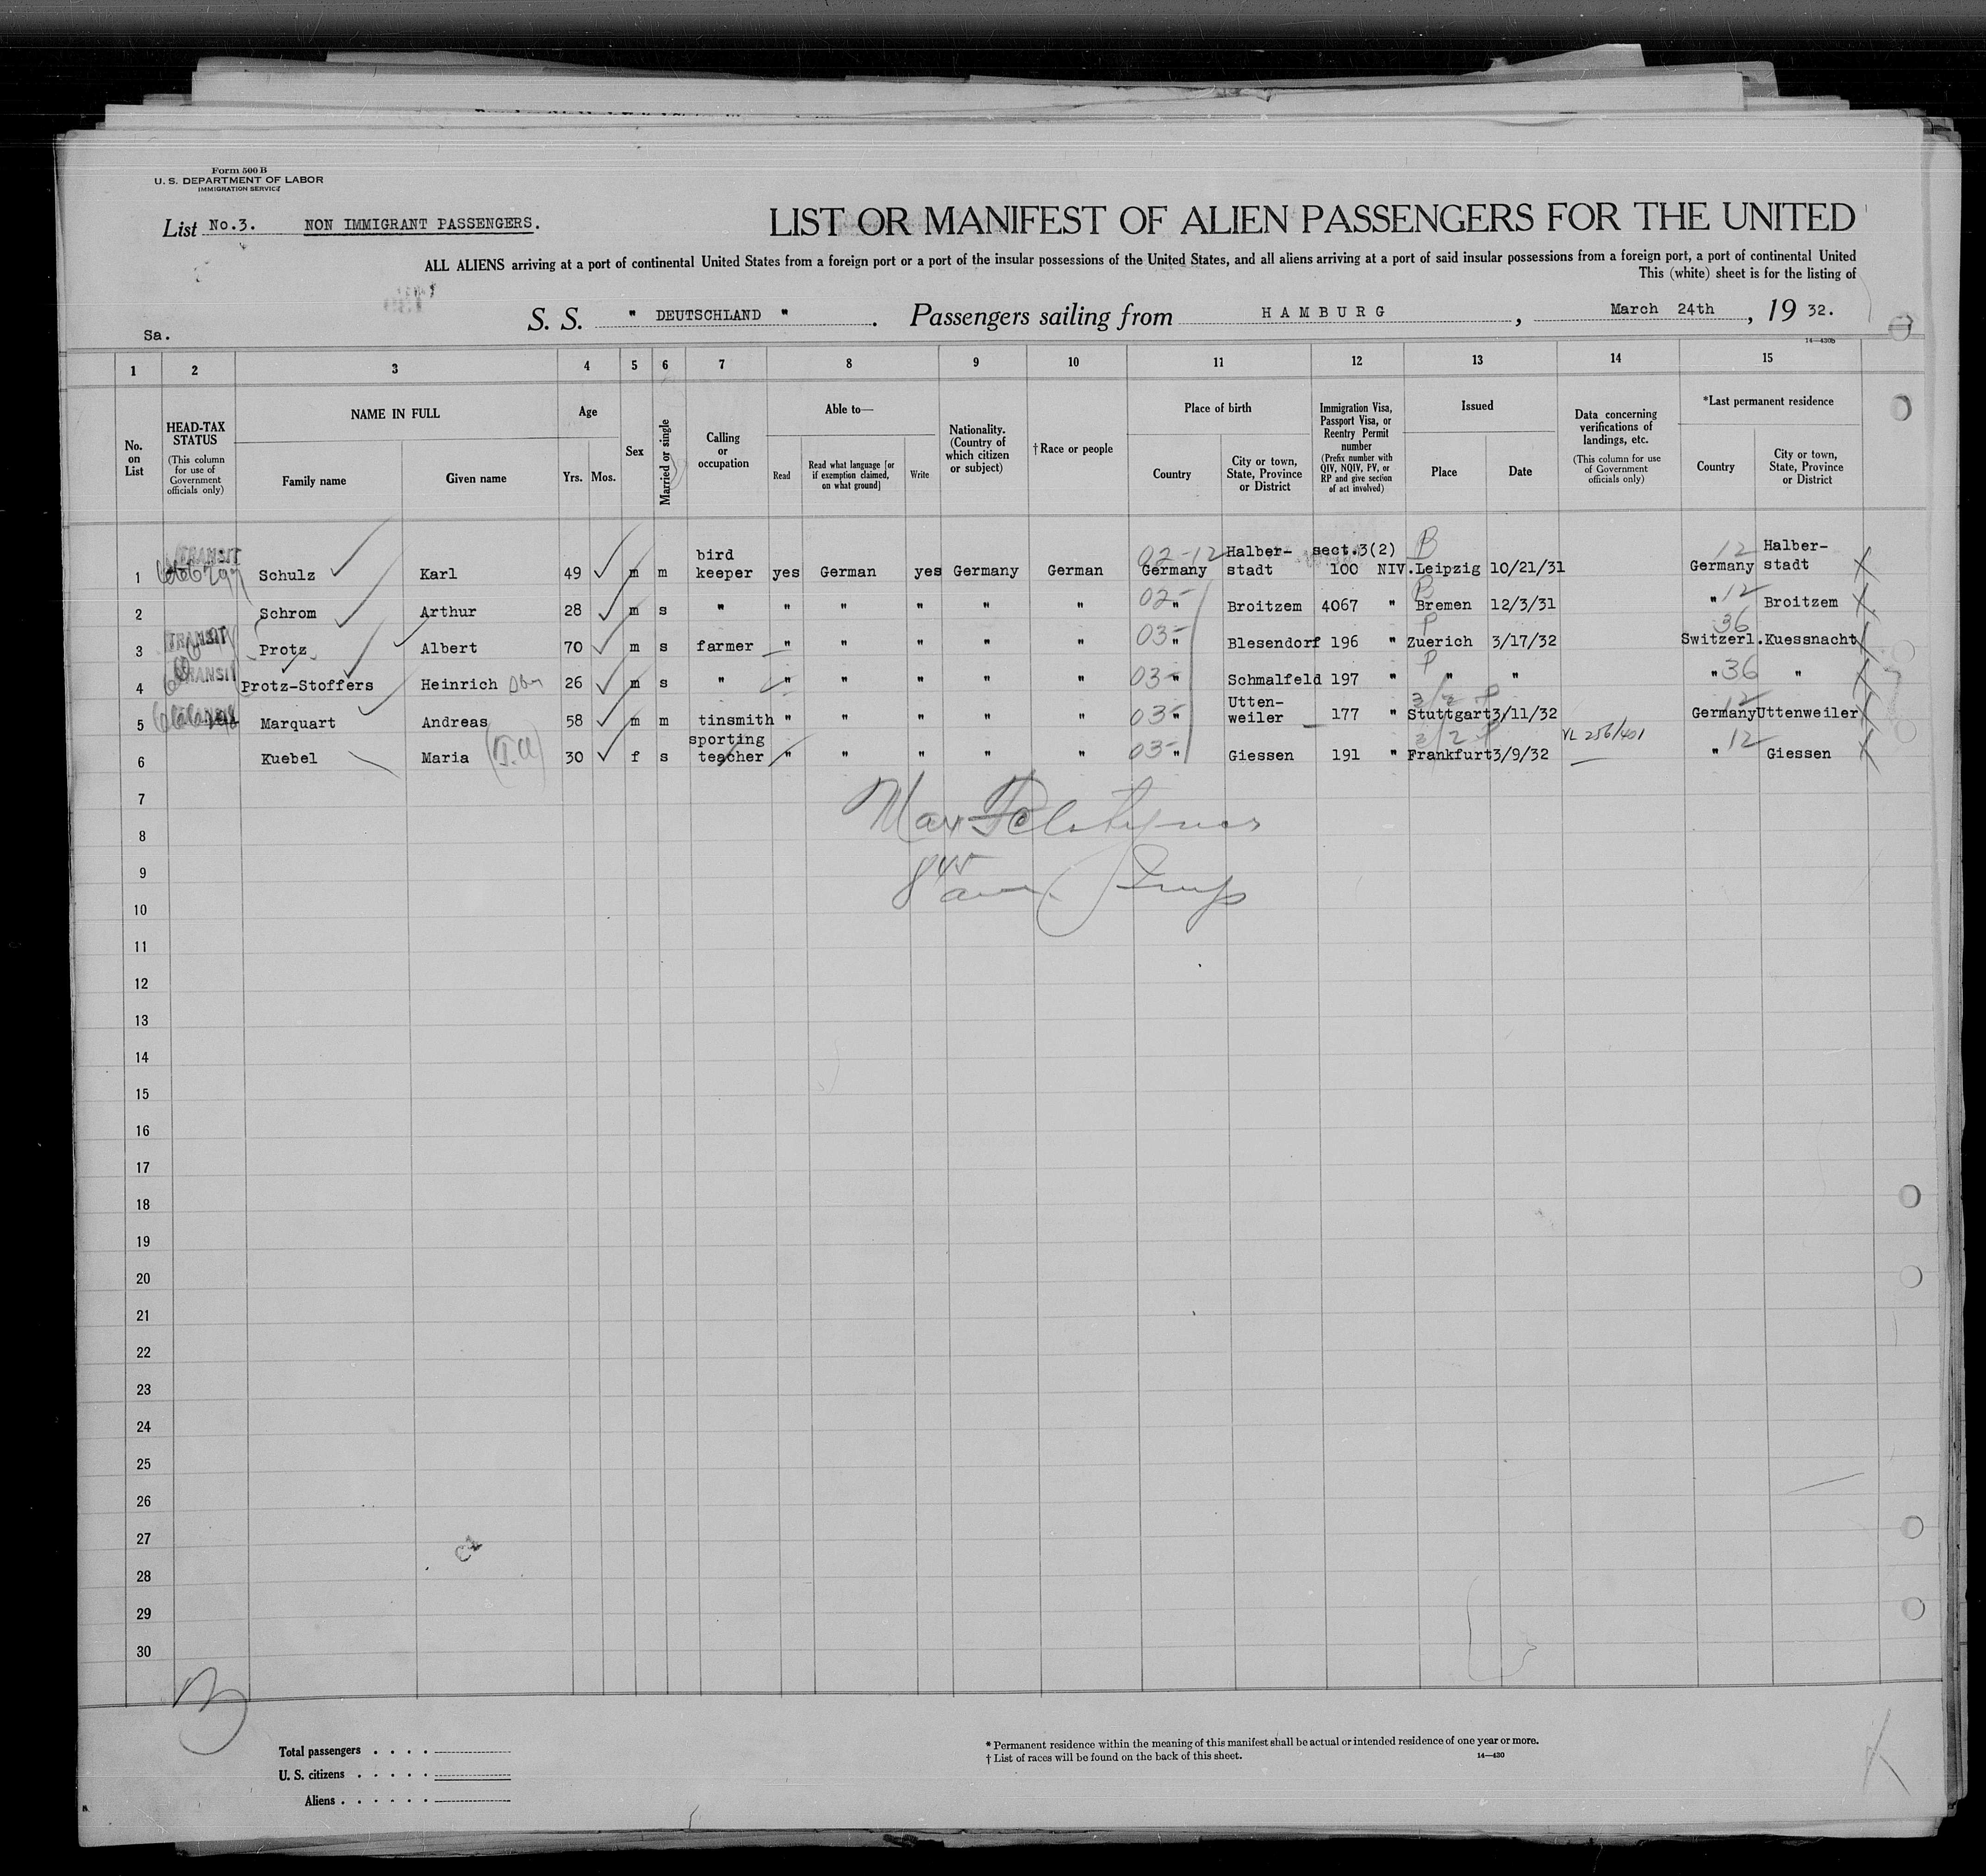 Form 500 B
U. S. DEPARTMENT OF LABOR
IMMIGRATION SERVICE
List No.3. NON IMMIGRANT PASSENGERS.
LIST OR MANIFEST OF ALIEN PASSENGERS FOR THE UNITED
ALL ALIENS arriving at a port of continental United States from a foreign port or a port of the insular possessions of the United States, and all aliens arriving at a port of said insular possessions from a foreign port, a port of continental United
This (white) sheet is for the listing of
Sa.
S. S. " DEUTSCHLAND " . Passengers sailing from HAMBURG , March 24th , 19 32.
14—430b
1 2 3 4 5 6 7 8 9 10 11 12 13 14 15
No. on List
HEAD-TAX STATUS
(This column for use of Government officials only)
NAME IN FULL
Family name
Given name
Age
Yrs. Mos.
Sex
Married or single
Calling or occupation
Able to—
Read
Read what language [or if exemption claimed, on what ground]
Write
Nationality. (Country of which citizen or subject)
† Race or people
Place of birth
Country
City or town, State, Province or District
Immigration Visa, Passport Visa, or Reentry Permit number
(Prefix number with QIV, NQIV, PV, or RP and give section of act involved)
Issued
Place
Date
Data concerning verifications of landings, etc.
(This column for use of Government officials only)
*Last permanent residence
Country
City or town, State, Province or District
TRANSIT bird 02-12 Halber- sect.3(2) B 12 Halber-
1 Schulz Karl 49 m m keeper yes German yes Germany German Germany stadt 100 NIV. Leipzig 10/21/31 Germany stadt
02- B 12
2 Schrom Arthur 28 m s " " " " " " " Broitzem 4067 " Bremen 12/3/31 " Broitzem
TRANSIT 03- P 36
3 Protz Albert 70 m s farmer " " " " " " Blesendorf 196 " Zuerich 3/17/32 Switzerl. Kuessnacht
TRANSIT 03- P 36
4 Protz-Stoffers Heinrich 26 m s " " " " " " " Schmalfeld 197 " " " " "
03- Utten- 3/2 P 12
5 Marquart Andreas 58 m m tinsmith " " " " " " weiler 177 " Stuttgart 3/11/32 Germany Uttenweiler
sporting 03- 3/2 P VL 256/401 12
6 Kuebel Maria 30 f s teacher " " " " " " Giessen 191 " Frankfurt 3/9/32 " Giessen
7
Max
8
845
9
am
10
11
12
13
14
15
16
17
18
19
20
21
22
23
24
25
26
27
28
29
30
3
Total passengers
U. S. citizens
Aliens
* Permanent residence within the meaning of this manifest shall be actual or intended residence of one year or more.
† List of races will be found on the back of this sheet.
14—430